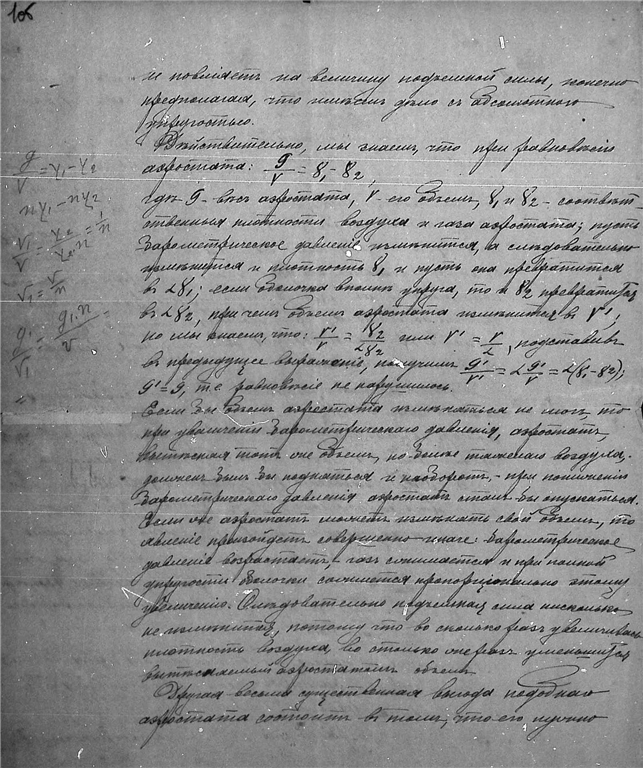 106
не повлiяетъ на величину подъемной силы, конечно
предполагая, что имѣемъ дѣло съ абсолютною
упругостью.
Дѣйствительно, мы знаемъ, что при равновесiи
аэростата: g/v = γ1 - γ2,
гдѣ g - вѣсъ аэростата, v - его объемъ, γ1 и γ2 - соотвѣт-
ственныя плотности воздуха и газа аэростата; пусть
барометрическое давленiе измѣнится, а слѣдовательно
измѣнится и плотность γ1 и пусть она превратится
въ αγ1; если оболочка вполнѣ упруга, то и γ2 превратится
въ αγ2, при чемъ объемъ аэростата измѣнится въ v',
но мы знаемъ, что: v'/v = γ2/αγ2 или v' = v/α, подставивъ
въ предыдущее выраженiе, получимъ g'/v' = α g/v = α(γ1-γ2);
g' = g, т.е. равновесiе не нарушилось.
Если бы объемъ аэростата измѣняться не могъ, то
при увеличенiи барометрическаго давленiя, аэростатъ,
вытѣсняя тотъ же объемъ, но болѣе тяжелаго воздуха,
долженъ былъ бы подняться и наоборотъ, - при пониженiи
барометрическаго давленiя аэростатъ сталъ бы опускаться.
Если же аэростатъ можетъ измѣнять свой объемъ, то
явленiе произойдетъ совершенно иначе: барометрическое
давленiе возрастаетъ, - газъ сжимается и при полной
упругости оболочки сожмется пропорцiонально этому
увеличенiю. Слѣдовательно подъемная сила нисколько
не измѣнится, потому что во сколько разъ увеличилась
плотность воздуха, во столько же разъ уменьшится
вытѣсняемый аэростатомъ объемъ.
Другая весьма существенная выгода подобнаго
аэростата состоитъ въ томъ, что его нужно
g/v = γ1 - γ2
nγ1 - nγ2
v1/v = γ2/γ2.n = 1/n
v1 = v/n
g1/v1 = g1.n/v =